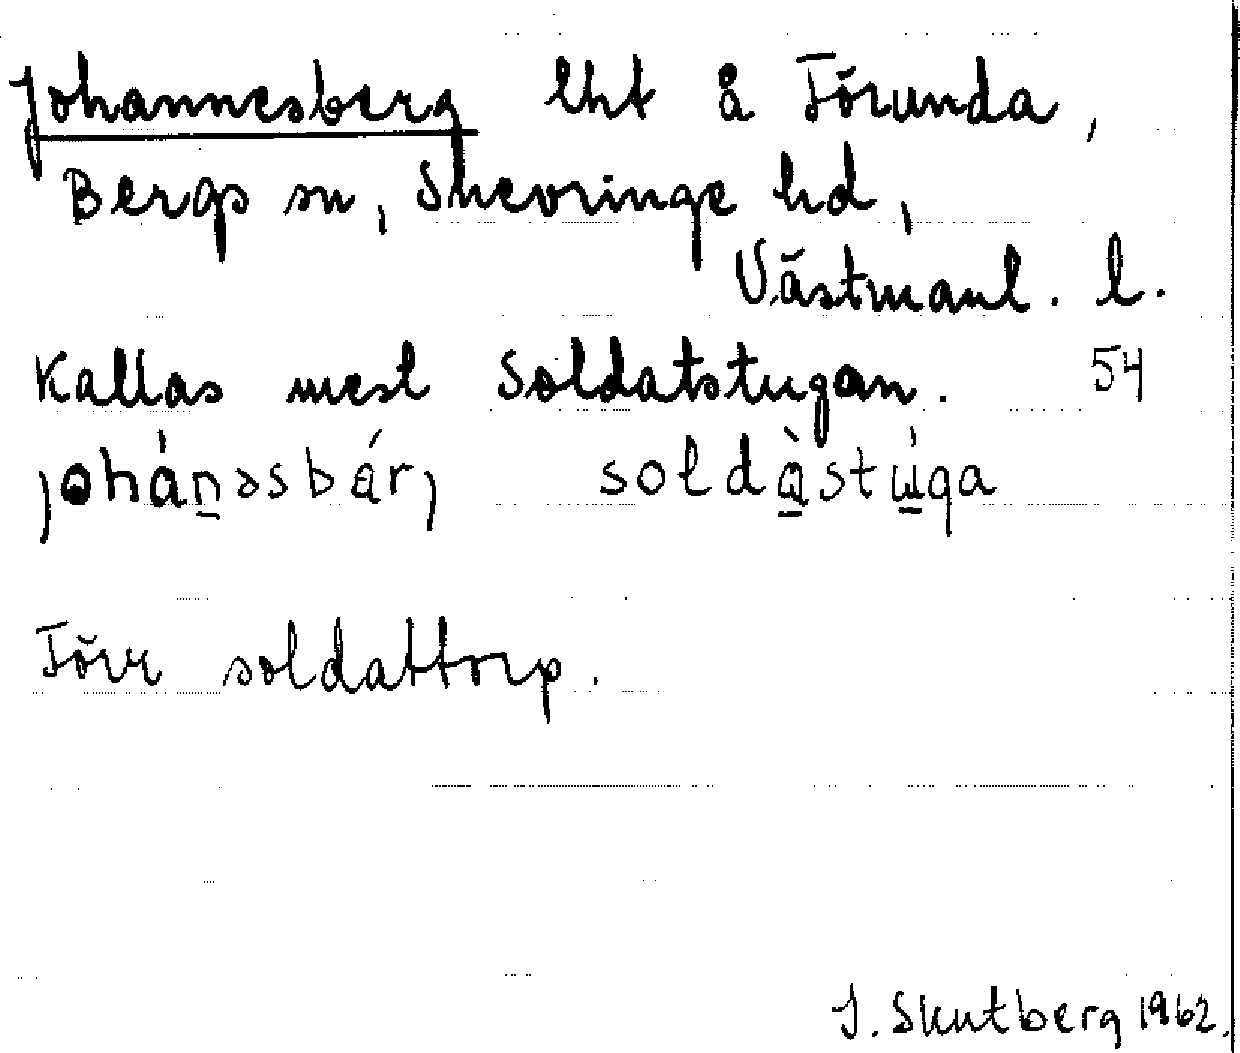 Johannesberg lht å Törunda,
Bergs sn, Snevringe hd,
Västmanl. l.
Kallas mest Soldatstugan. 54
johánəsbárj soldàstúga
Förr soldattorp.
J. Skutberg 1962.